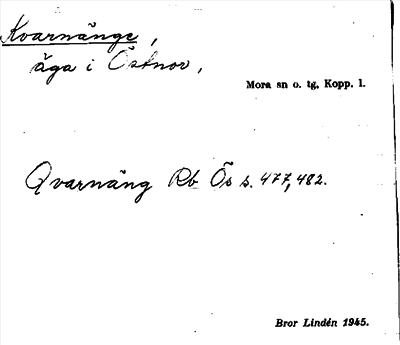 Kvarnänge,
äga i Östnor,
Mora sn o. tg, Kopp. l.
Qvarnäng Rb Ös s. 477, 482.
Bror Lindén 1945.